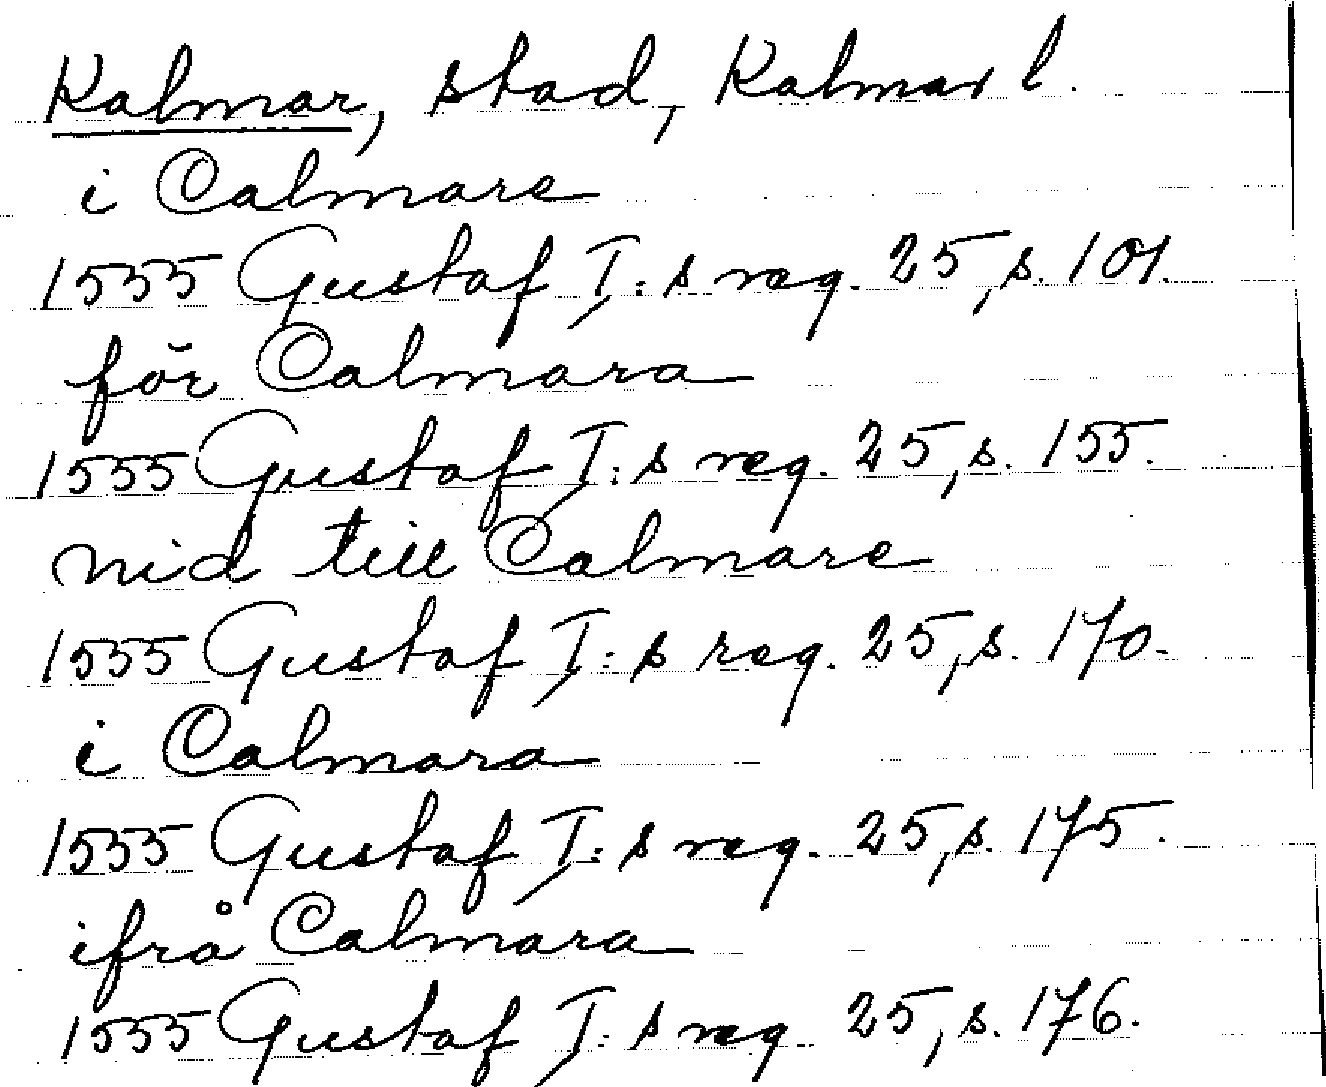 Kalmar, stad, Kalmar l.
i Calmare
1555 Gustaf I:s reg. 25, s. 101.
för Calmara
1555 Gustaf I:s reg. 25, s. 155.
nid till Calmare
1555 Gustaf I:s reg. 25, s. 170.
i Calmara
1555 Gustaf I:s reg. 25, s. 175.
ifrå Calmara
1555 Gustaf I:s reg 25, s. 176.